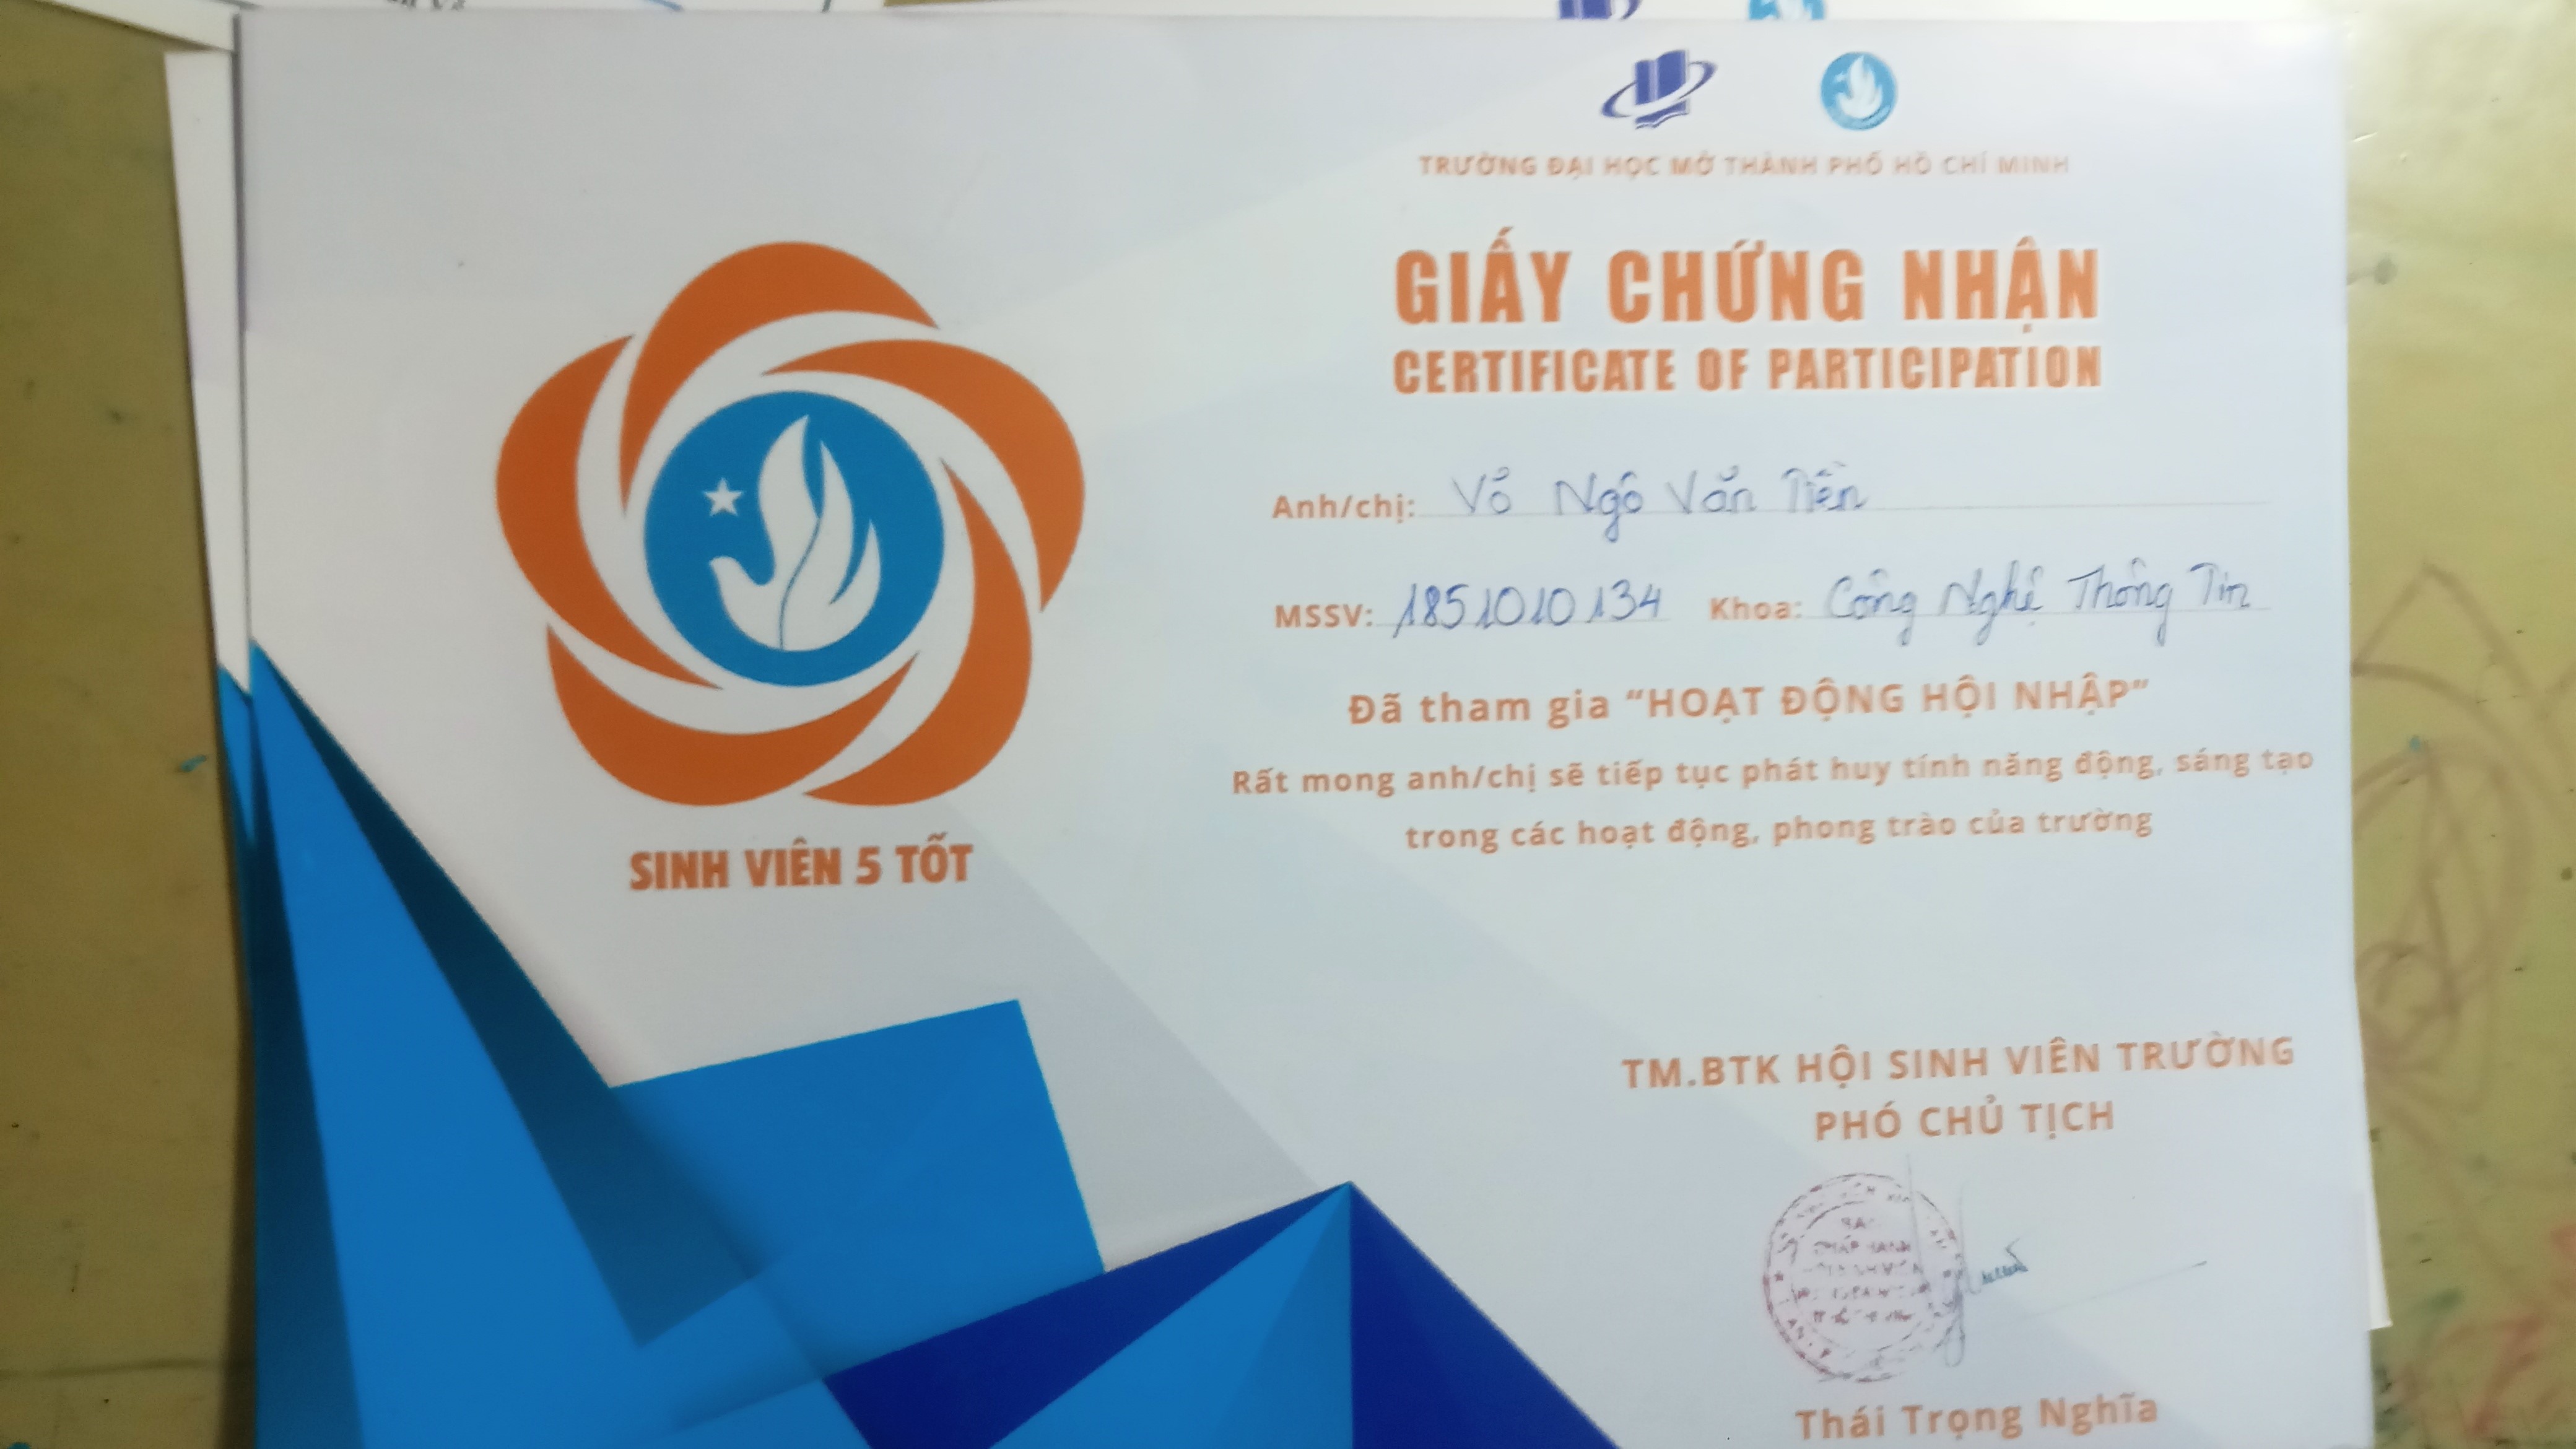 TRƯỜNG ĐẠI HỌC MỞ THÀNH PHỐ HỒ CHÍ MINH
GIẤY CHỨNG NHẬN
CERTIFICATE OF PARTICIPATION
Anh/chị: Võ Ngô Văn Tiến
MSSV: 1851010134 Khoa: Công Nghệ Thông Tin
Đã tham gia “HOẠT ĐỘNG HỘI NHẬP”
Rất mong anh/chị sẽ tiếp tục phát huy tính năng động, sáng tạo
trong các hoạt động, phong trào của trường
SINH VIÊN 5 TỐT
TM.BTK HỘI SINH VIÊN TRƯỜNG
PHÓ CHỦ TỊCH
Thái Trọng Nghĩa